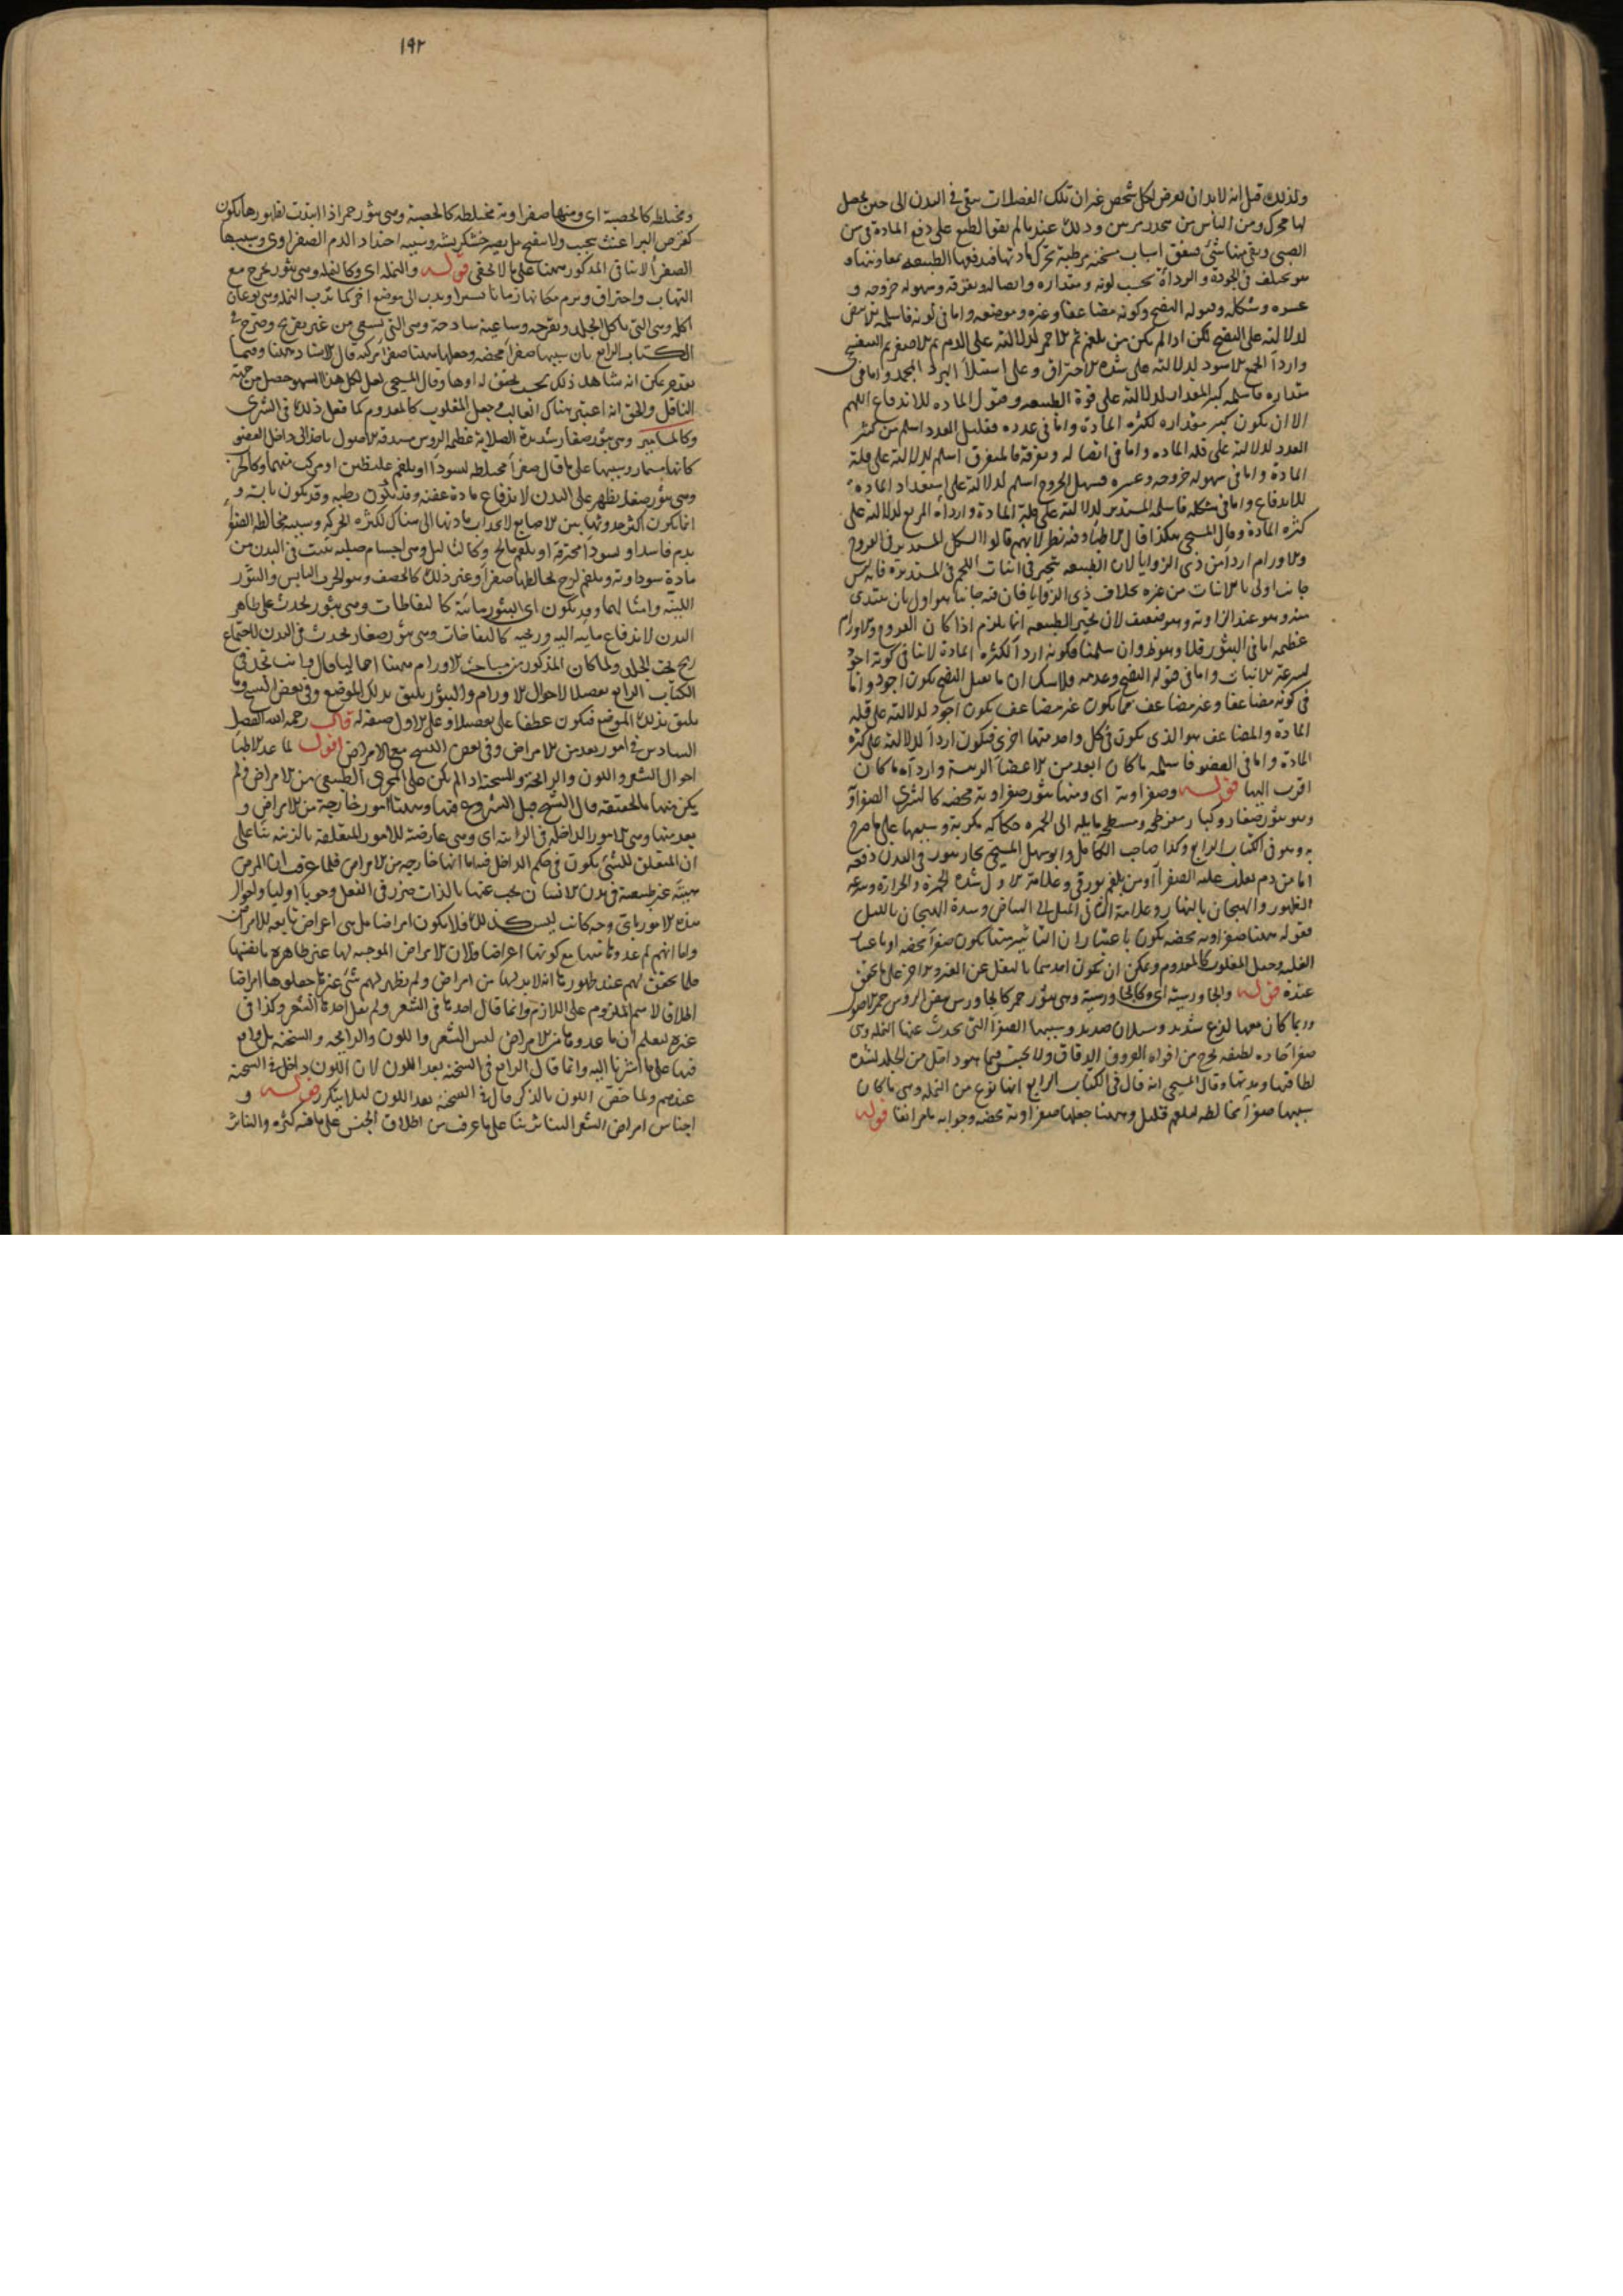 ولذلك قيل انه لابد ان يعرض لكل شخص غير ان تلك الفضلات تبقى في البدن الى حين يحصل
لها محرك ومن الناس من وذلك عندما لم يقو الطبع على دفع المادة في سن
الصبى وبقي منها شئ فيتفق اسباب مسخنة مرطبة تحرك مادتها فتدفعها الطبيعة بمعاونتها و
هو يختلف في الجودة والرداة بحسب لونه ومقداره واتصاله وتفرقه وسهولة خروجه و
عسره وشكله وقبوله النضج وكونه مضاعفا وغيره وموضعه واما في لونه فاسلمه الابيض
لدلالته على النضج لكن اذا لم يكن من بلغم ثم الاحمر لدلالته على الدم ثم الاصفر ثم البنفسجي
واردا الجميع الاسود لدلالته على شدة الاحتراق وعلى استيلا البرد المجمد واما في
مقداره فاسلمه كبير المقدار لدلالته على قوة الطبيعة وقبول المادة للاندفاع اللهم
الا ان يكون كبر مقداره لكثرة المادة واما في عدده فقليل العدد اسلم من كثير
العدد لدلالته على قلة المادة واما في اتصاله وتفرقه فالمتفرق اسلم لدلالته على قلة
المادة واما في سهولة خروجه وعسره فسهل الخروج اسلم لدلالته على استعداد المادة
للاندفاع واما في شكله فاسلمه المستدير لدلالته على قلة المادة واردأه المربع لدلالته على
كثرة المادة وقال المسيحي هكذا قال الاطباء وفيه نظر لانهم قالوا الشكل المستدير في القروح
والاورام اردا من ذي الزوايا لان الطبيعة تتحير في انبات اللحم في المستديرة فانه ليس
جانب اولى بالانبات من غيره بخلاف ذي الزوايا فان فيه جانبا هو اولى بان يبتدى
منه وهو عند الزاوية وهو ضعيف لان تحير الطبيعة انما يلزم اذا كان القروح والاورام
عظيمة اما في البثور فلا وان سلمنا فكونه اردا لكثرة المادة لا ينافي كونه اجود
لسرعة الانبات واما في قبوله النضج وعدمه فلا شك ان ما يقبل النضج يكون اجود واما
في كونه مضاعفا وغير مضاعف فما يكون غير مضاعف يكون اجود لدلالته على قلة
المادة والمضاعف هو الذى يكون في كل واحد منها اخرى فيكون اردا لدلالته على كثرة
المادة واما في العضو فاسلمه ما كان ابعد من الاعضا الرئيسة واردأه ما كان
اقرب اليها قوله وصفراوية اى ومنها بثور صفراوية محضة كالشرى الصفراوى
وهو بثور صغار وكبار مسطحة مايلة الى الحمرة حكاكة مكربة وسببها على ما صرح
به وهو في الكتاب الرابع وكذا صاحب الكامل وابو سهل المسيحي بخار يثور في البدن دفعة
اما من دم يغلب عليه الصفرا او من بلغم بورقي وعلامة الاول شدة الحمرة والحرارة وسرعة
الظهور والهيجان بالنهار وعلامة الثاني الميل الى البياض وشدة الهيجان بالليل
فقوله ههنا صفراوية محضة يكون باعتبار ان الثاثير منها يكون صفرا محضة او باعتبار
الغلبة وجعل المغلوب كالمعدوم ويمكن ان يكون احدهما بالنقل عن الغير والاخر على ما تحقق
عنده قوله والجاورسية اى وكالجاورسية وهى بثور حمر كالجاورس بيض الروس حمر الاصول
وربما كان معها لذع شديد وسيلان صديد وسببها الصفرا التى يحدث عنها النملة وهى
صفرا حادة لطيفة تخرج من افواه العروق الدقاق ولا يحبس فيما هو داخل من الجلد لشدة
لطافتها وحدتها وقال المسيحى انه قال في الكتاب الرابع انها نوع من النملة وهى ما كان
سببها صفرا مخالطة لبلغم قليل وههنا جعلها صفراوية محضة وجوابه ما مر انفا قوله
١٩٢
ومختلطة كالحصبة اى ومنها صفراوية مختلطة كالحصبة وهى بثور حمر اذا ابتدت تظهر رها يكون
كقرص البراغيث تحبب ولا تتقيح بل يصير خشكريشة وسببه احتداد الدم الصفراوى وسببها
الصفرا لا ينافي المذكور ههنا على ما لا يخفى قوله والنملة اى وكالنملة وهى بثور تخرج مع
التهاب واحتراق ويرم مكانها زمانا يسيرا ويدب الى موضع اخر كما تدب النملة وهى نوعان
اكلة وهى التى تاكل الجلد وتقرحه وساعية ساذجة وهى التى تسعى من غير تقرح وصرح في
الكتاب الرابع بان سببها صفرا محضة وجعلها ههنا صفرا مركبة قال الاستاذ رحمه
بعد مر يمكن انه شاهد ذلك بحسب تحقق له اوها وقال المسيحى لعل كل هذا السهو حصل من جهة
الناقل والحق انه اعتبر هناك الغالب وجعل المغلوب كالمعدوم كما فعل ذلك في الشرى
وكالمسامير وهى بثور صغار شديدة الصلابة عظيمة الروس مستدقة الاصول ياخذ الى داخل العضو
كانها مسمار وسببها على ما قال صفرا مختلطة لسودا او بلغم غليظين او مركب منهما وكالجرب
وهى بثور صغار يظهر على البدن لاندفاع مادة عفنة وقد يكون رطبة وقد يكون يابسة و
انما يكون اكثر حدوثها بين الاصابع لانجذاب مادتها الى هناك لكثرة الحركة وسببه مخالطة الصفرا
بدم فاسد او بسودا محترقة او بلغم مالح وكالثاليل وهى اجسام صلبة تنبت في البدن من
مادة سوداوية وبلغم لزج يخالطها صفرا وغير ذلك كالحصف وهو الجرب اليابس والبثور
اللبنية وامثالهما وقد يكون اى البثور مائية كالنفاطات وهى بثور تحدث على ظاهر
البدن لاندفاع مايته اليه وريحية كالنفاخات وهى بثور صغار تحدث في البدن لاجتماع
ريح تحت الجلد ولما كان المذكور من مباحث الاورام ههنا اجماليا قال وانت تجد في
الكتاب الرابع تفصيلا لاحوال الاورام والبثور يليق بذلك الموضع وفي بعض النسخ وما
يليق بذلك الموضع فيكون عطفا على تفصيلا وعلى الاول صفة له قال رحمه الله الفصل
السادس في امور يعد من الامراض وفي بعض النسخ مع الامراض اقول لما عد الاطبا
احوال الشعر واللون والرائحة والسحنة اذا لم يكن على المجرى الطبيعى من الامراض ولم
يكن منها بالحقيقة قال الشيخ قبل الشروع فيها وههنا امور خارجة من الامراض و
يعد منها وهى الامور الداخلة في الزينة اى وهى عارضة للامور المتعلقة بالزينة بناء على
ان المتعلق للشئ يكون في حكم الداخل فيه اما انها خارجة من الامراض فلما عرف ان المرض
هيئة غير طبيعية في بدن الانسان يجب عنها بالذات ضرر في الفعل وجوبا اوليا واحوال
هذه الامور باى وجه كانت ليس كذلك فلا يكون امراضا بل هى اعراض تابعة للامراض
واما انهم لم عدوها منها مع كونها اعراضا فلان الامراض الموجبة لها غير ظاهرة بانفسها
فلما تحقق لهم عند ظهورها انه لابد لها من امراض ولم يظهر لهم شئ غيرها جعلوها امراضا
اطلاق لاسم الملزوم على اللازم وانما قال احدها في الشعر ولم يقل احدها الشعر وكذا في
غيره ليعلم ان ما عدوها من الامراض ليس الشعر واللون والرايحة والسحنة بل ما وقع
فيها على ما اشرنا اليه وانما قال الرابع في السحنة بعد اللون لان اللون داخل في السحنة
عندهم ولما خص اللون بالذكر قال في السحنة بعد اللون ليلا يتكرر قوله و
اجناس امراض الشعر التناثر بناء على ما عرف من اطلاق الجنس على ما فيه كثرة والتناثر